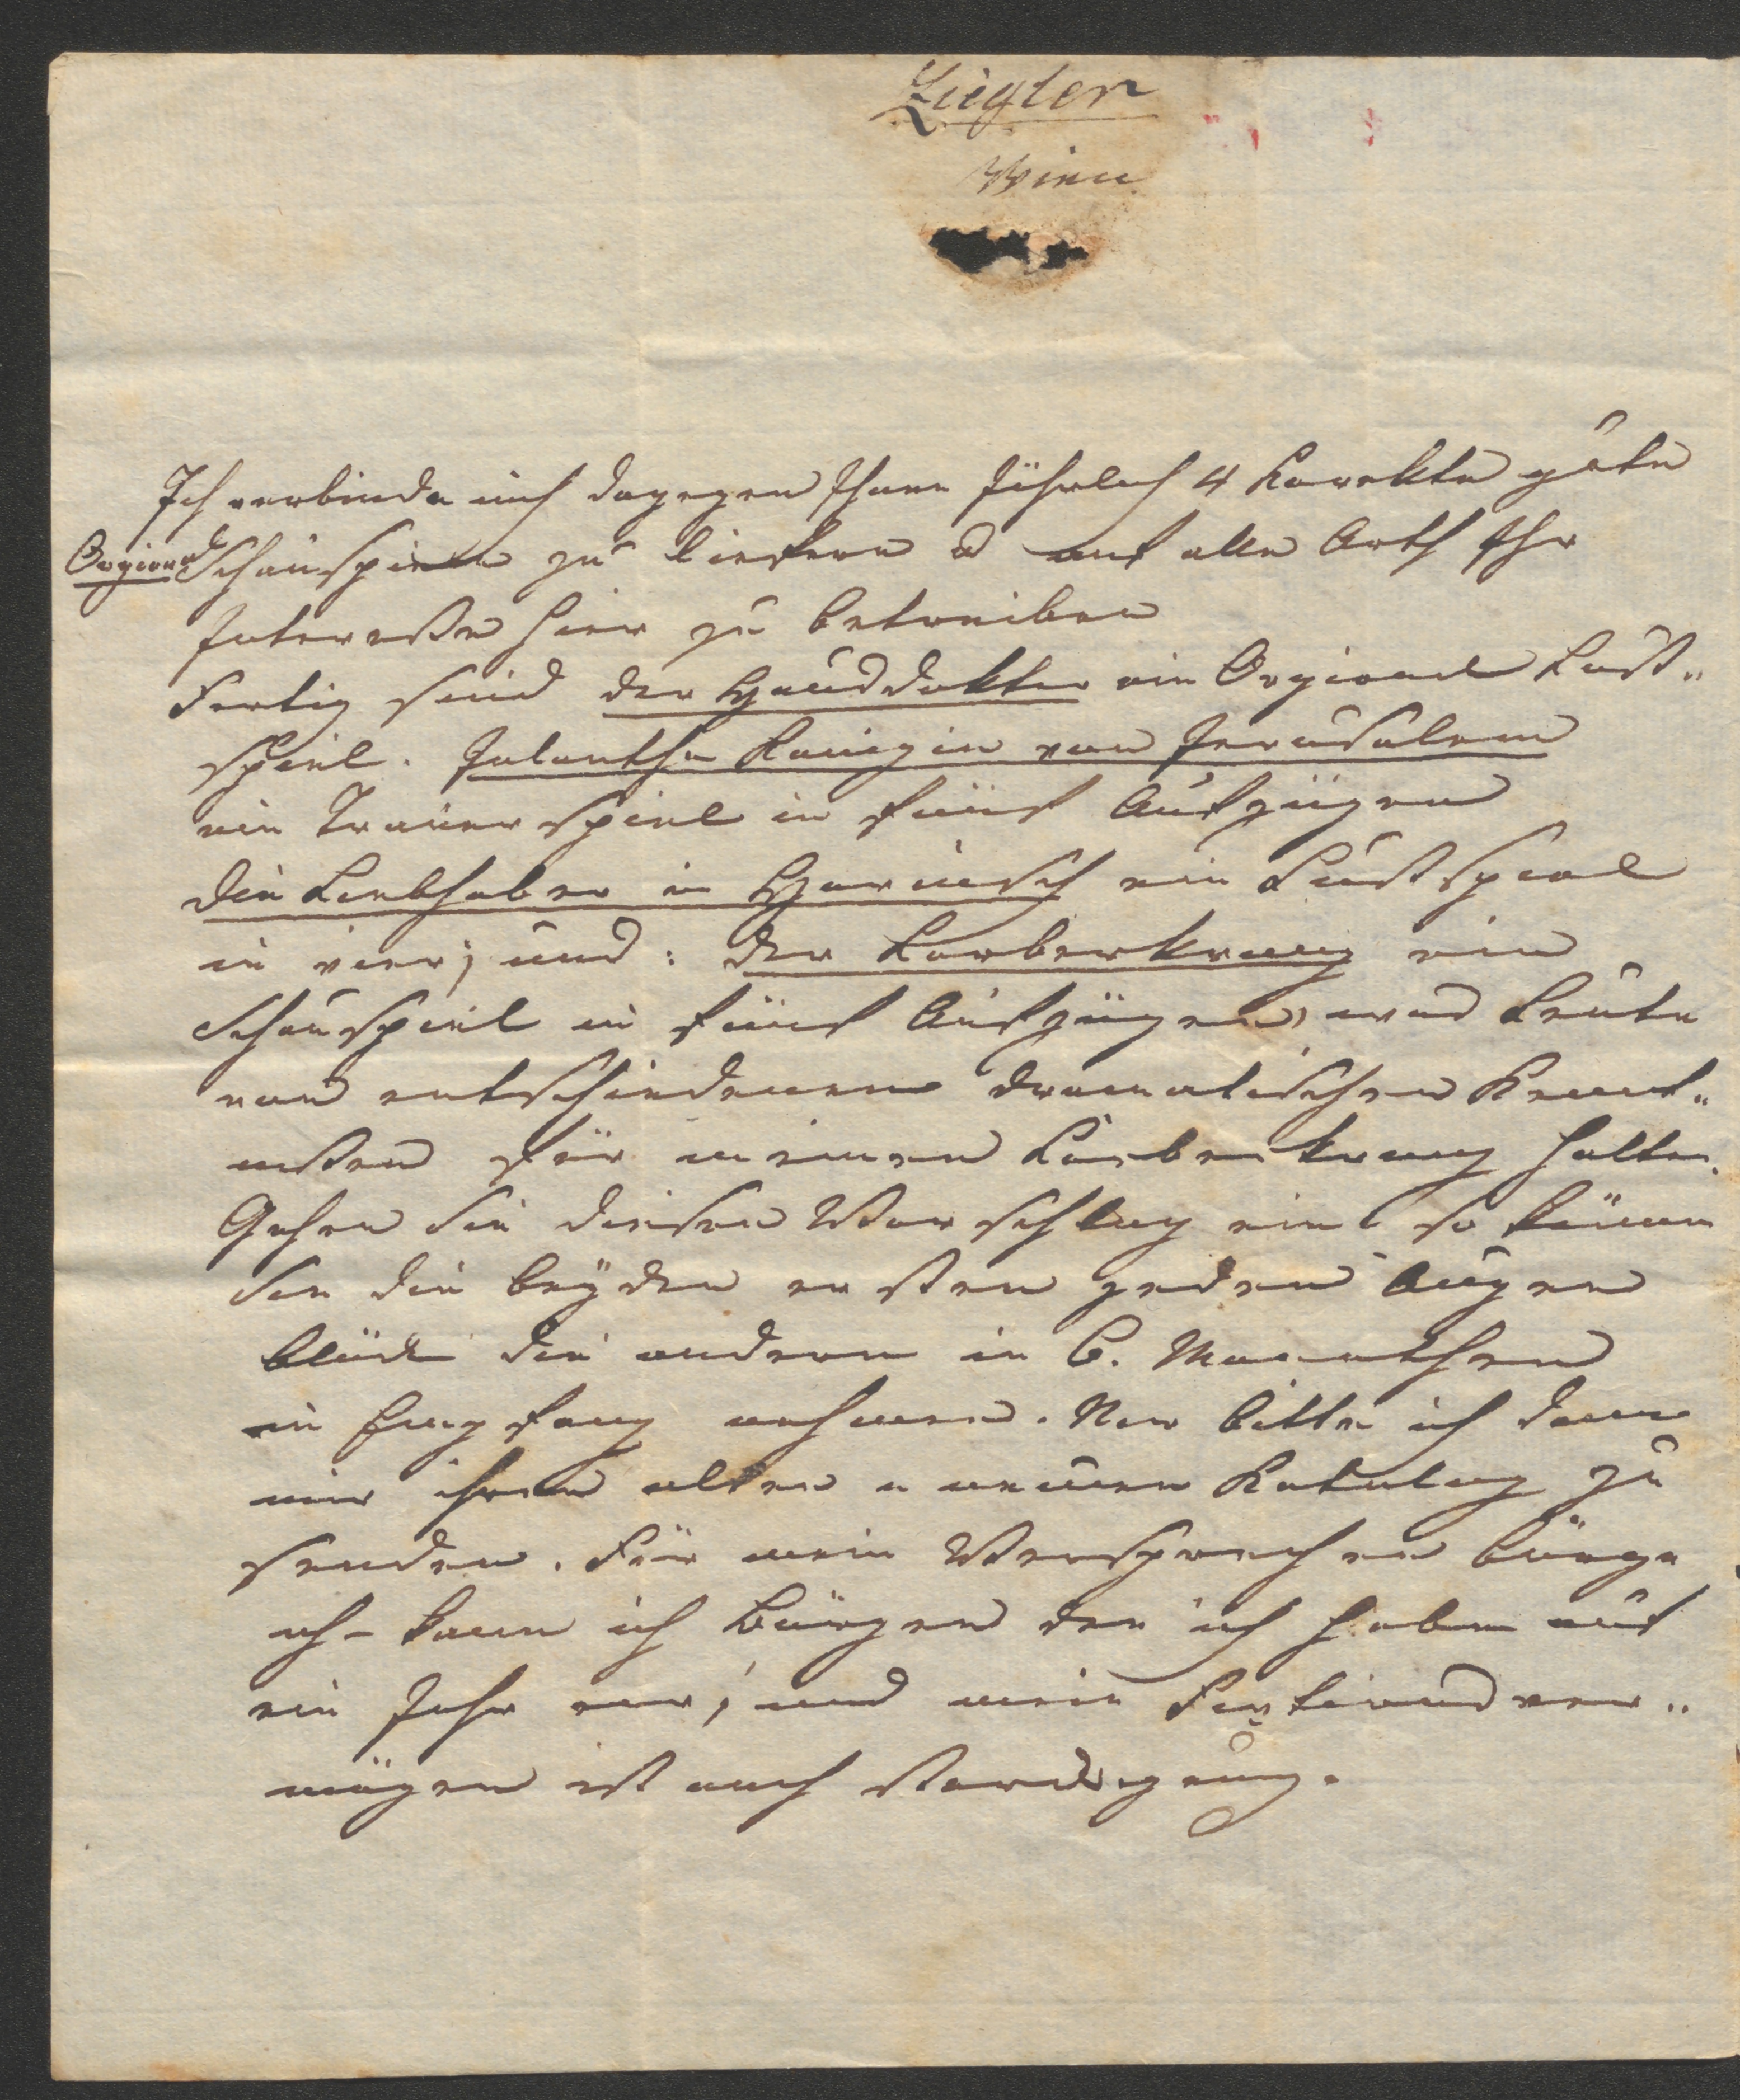 Ziegler
Wien
Ich verbinde mich dagegen Ihnen jährlich 4 Korekte gute
Orgional Schauspiele zu liefern u auf alle Arth Ihr
Intereße hier zu betreiben
Fertig sind der Hausdoktor ein Orgional Lust-
spiel. Jolantha Königin von Jerusalem
ein Trauerspiel in fünf Aufzügen
die Liebhaber im Harnisch ein Lustspiel
in vier; und: der Lorberkranz ein
Schauspiel in fünf Aufzügen, was Leute
von entschiedenen dramatischen Kent-
nißen für meinen Lorberkranz halten.
Gehen Sie diesen Vorschlag ein so können
Sie die beyden ersten jeden Augen
blick die andern in 6. Monathen
in Empfang nehmen. Nur bitte ich dann
mir ihren alten u neuen Katalog zu
senden. Für mein Versprechen bürge
ich – kann ich bürgen den ich habe auf
ein Jahr vor; und mein Fixkionsver-
mögen ist auch stark genug.